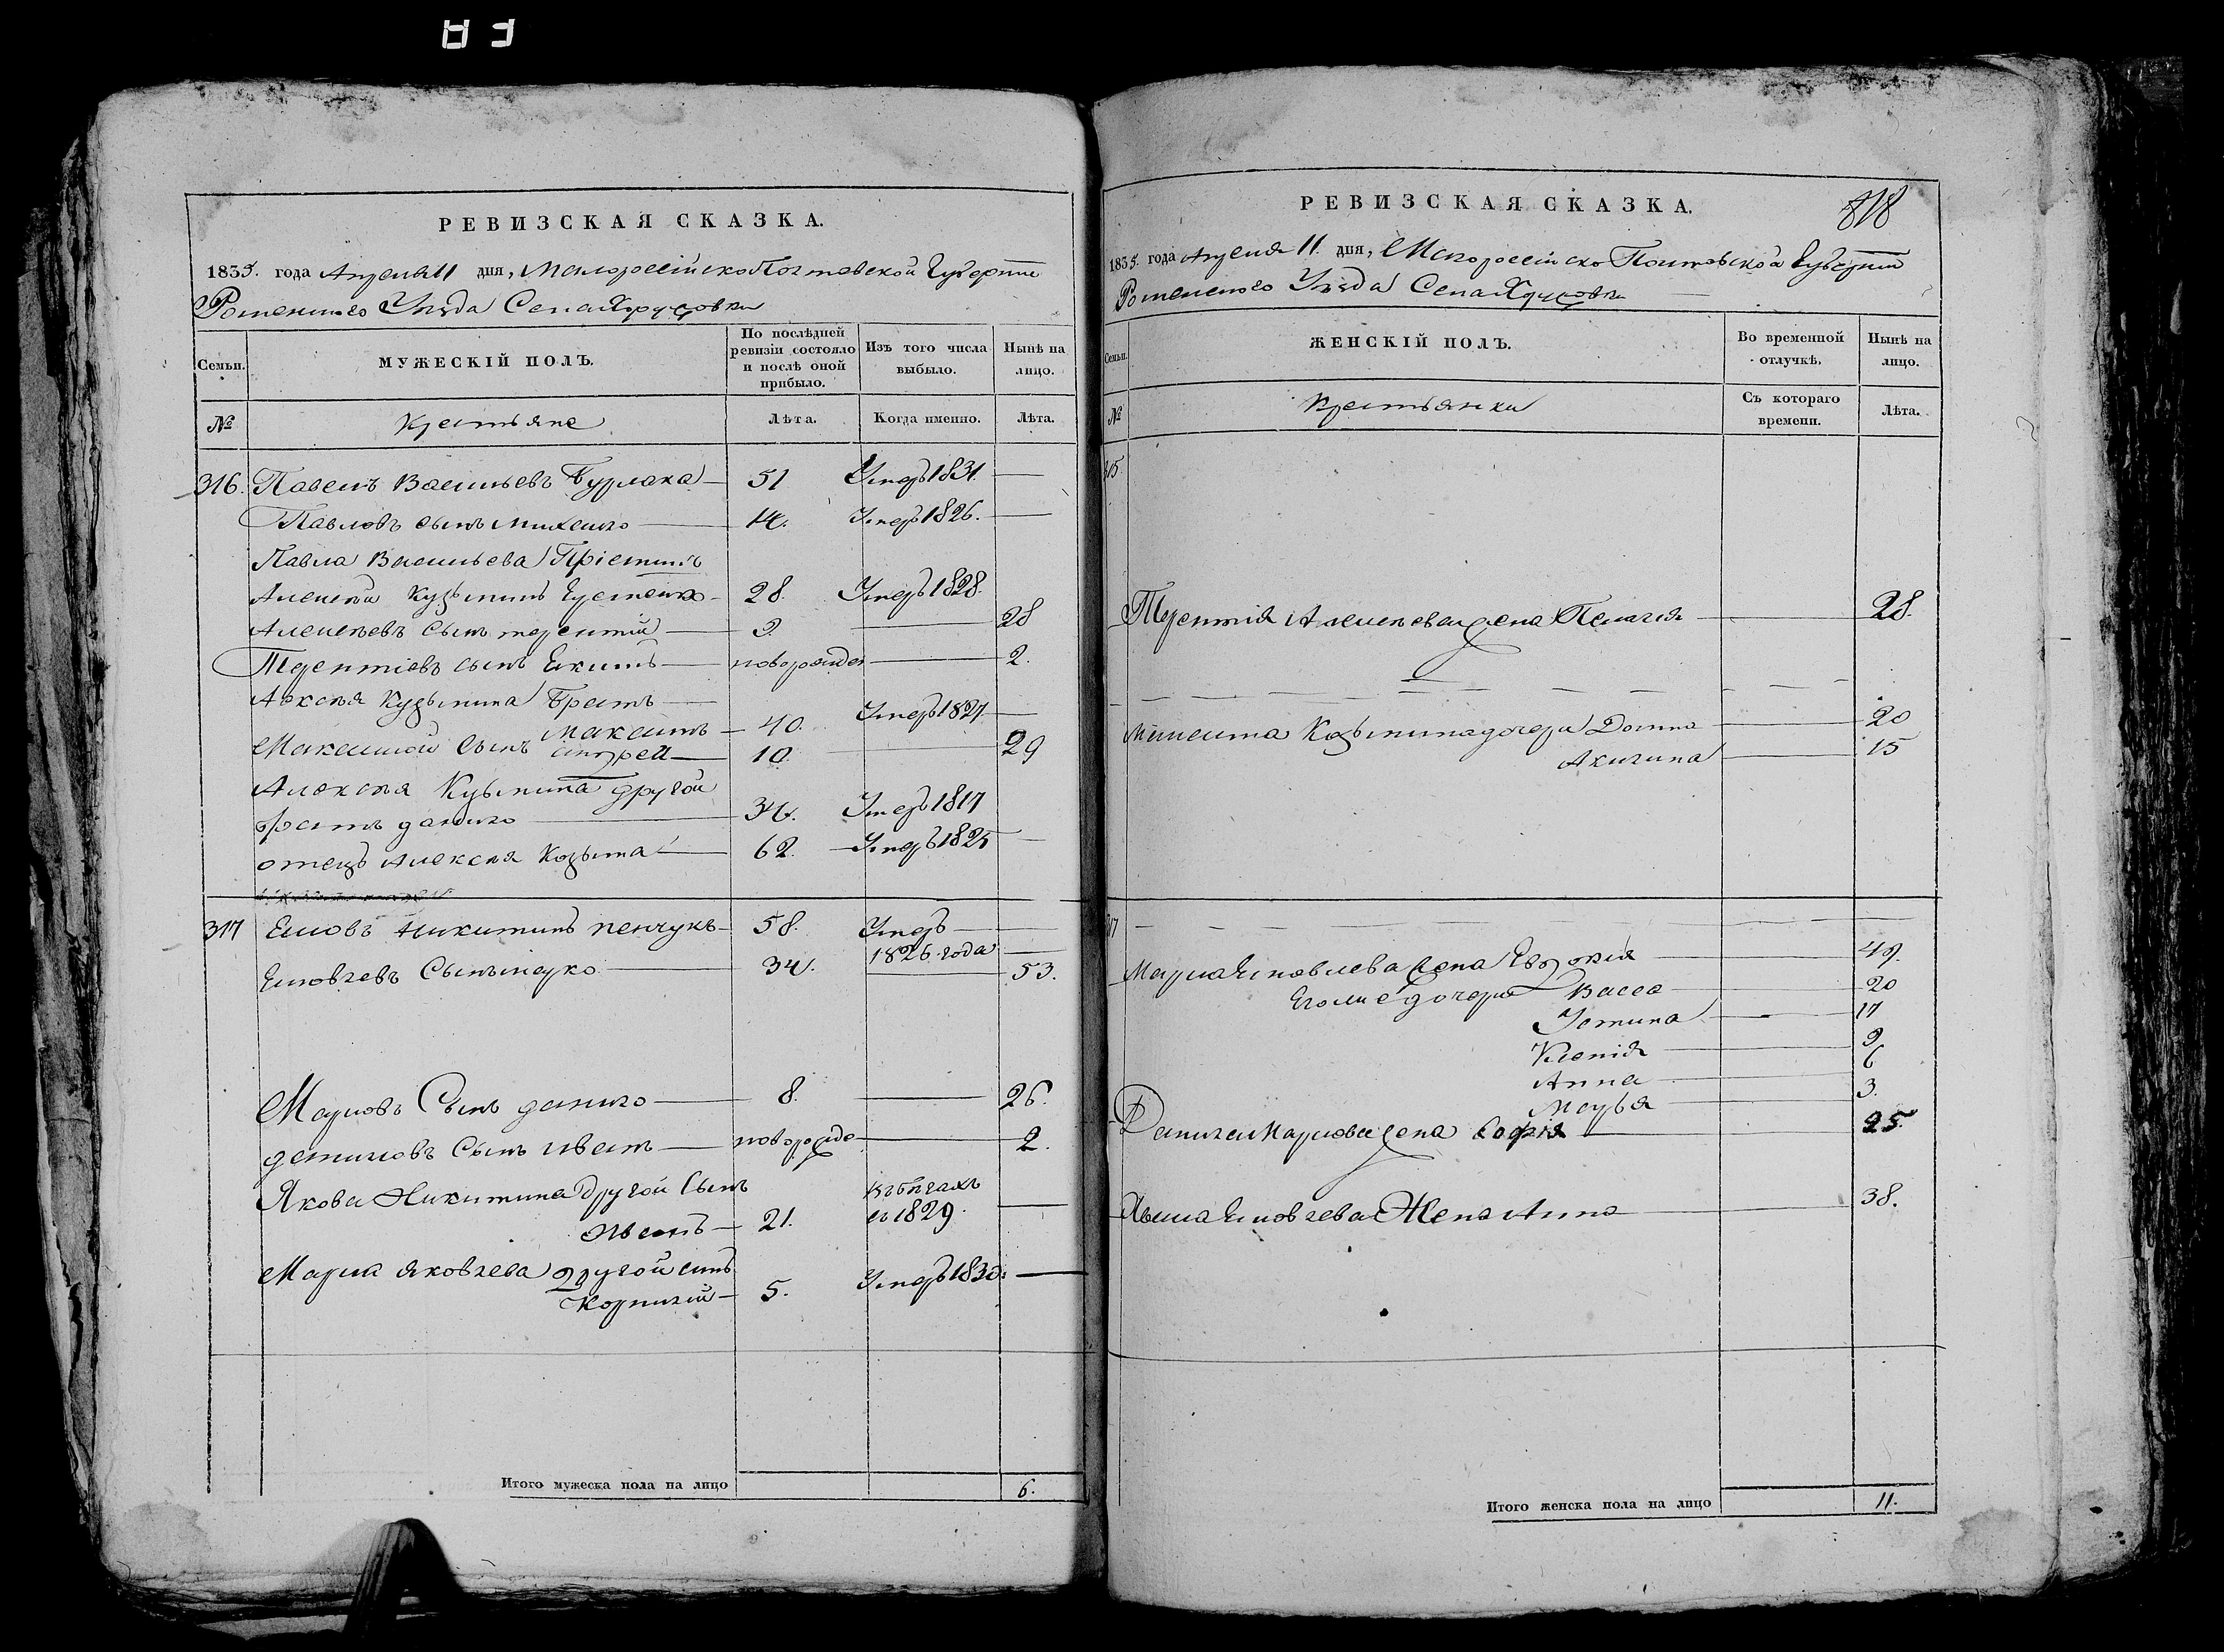 РЕВИЗСКАЯ СКАЗКА.
1835. года Апреля 11 дня, Малоросійско Полтавской Губерніи
Роменского Уезда Села Хрущовки
Семьи. МУЖЕСКІЙ ПОЛЪ. По послѣдней ревизіи состояло и послѣ оной прибыло. Изъ того числа выбыло. Нынѣ на лицо.
№ Крестьяне Лѣта. Когда именно. Лѣта.
316. Павелъ Васильевъ Бурлака 51 Умеръ 1831.
Павловъ сынъ Михайло 14. Умеръ 1826.
Павла Васильева Пріемышъ
Алексѣй Кузьминъ 28. Умеръ 1828.
Алексѣевъ сынъ терентій 9. 28
Терентіевъ сынъ Екимъ новорожде 2.
Алексѣя Кузьмина Братъ
Максимъ 40. Умеръ 1827
Максимой сынъ андрей 10. 29
Алексѣя Кузьмина другой
братъ данило 34. Умеръ 1817
отецъ Алексѣя Козьма 62. Умеръ 1825
317 Яковъ Никитинъ 58. Умеръ
1826 года
Яковлевъ Сынъ марко 34. 53.
Марковъ Сынъ данило 8. 26.
даниловъ Сынъ иванъ новорожде 2.
Якова Никитина другой Сынъ
Иванъ 21. въ бѣгахъ
съ 1829
Марка яковлева другой синъ
Корнилій 5. Умеръ 1830.
Итого мужеска пола на лицо 6.
РЕВИЗСКАЯ СКАЗКА. 818
1835. года Апреля 11. дня, Малоросійско Полтавской Губерніи
Роменского Уѣзда Села Хрущовки
Семьи. ЖЕНСКІЙ ПОЛЪ. Во временной отлучкѣ. Нынѣ на лицо.
№ Крестьянки Съ котораго времени. Лѣта.
Терентія Алексѣева жена Пелагія 28.
Козьмина дочери Домна 20
Акилина 15
Марка Яковлева жена Евдокія 49.
Егоже дочери Васса 20
Устина 17
Ксенія 9
Анна 6
Марья 3.
Данила Маркова жена Софія 25.
Ивана Яковлева Жена Анна 38.
Итого женска пола на лицо 11.